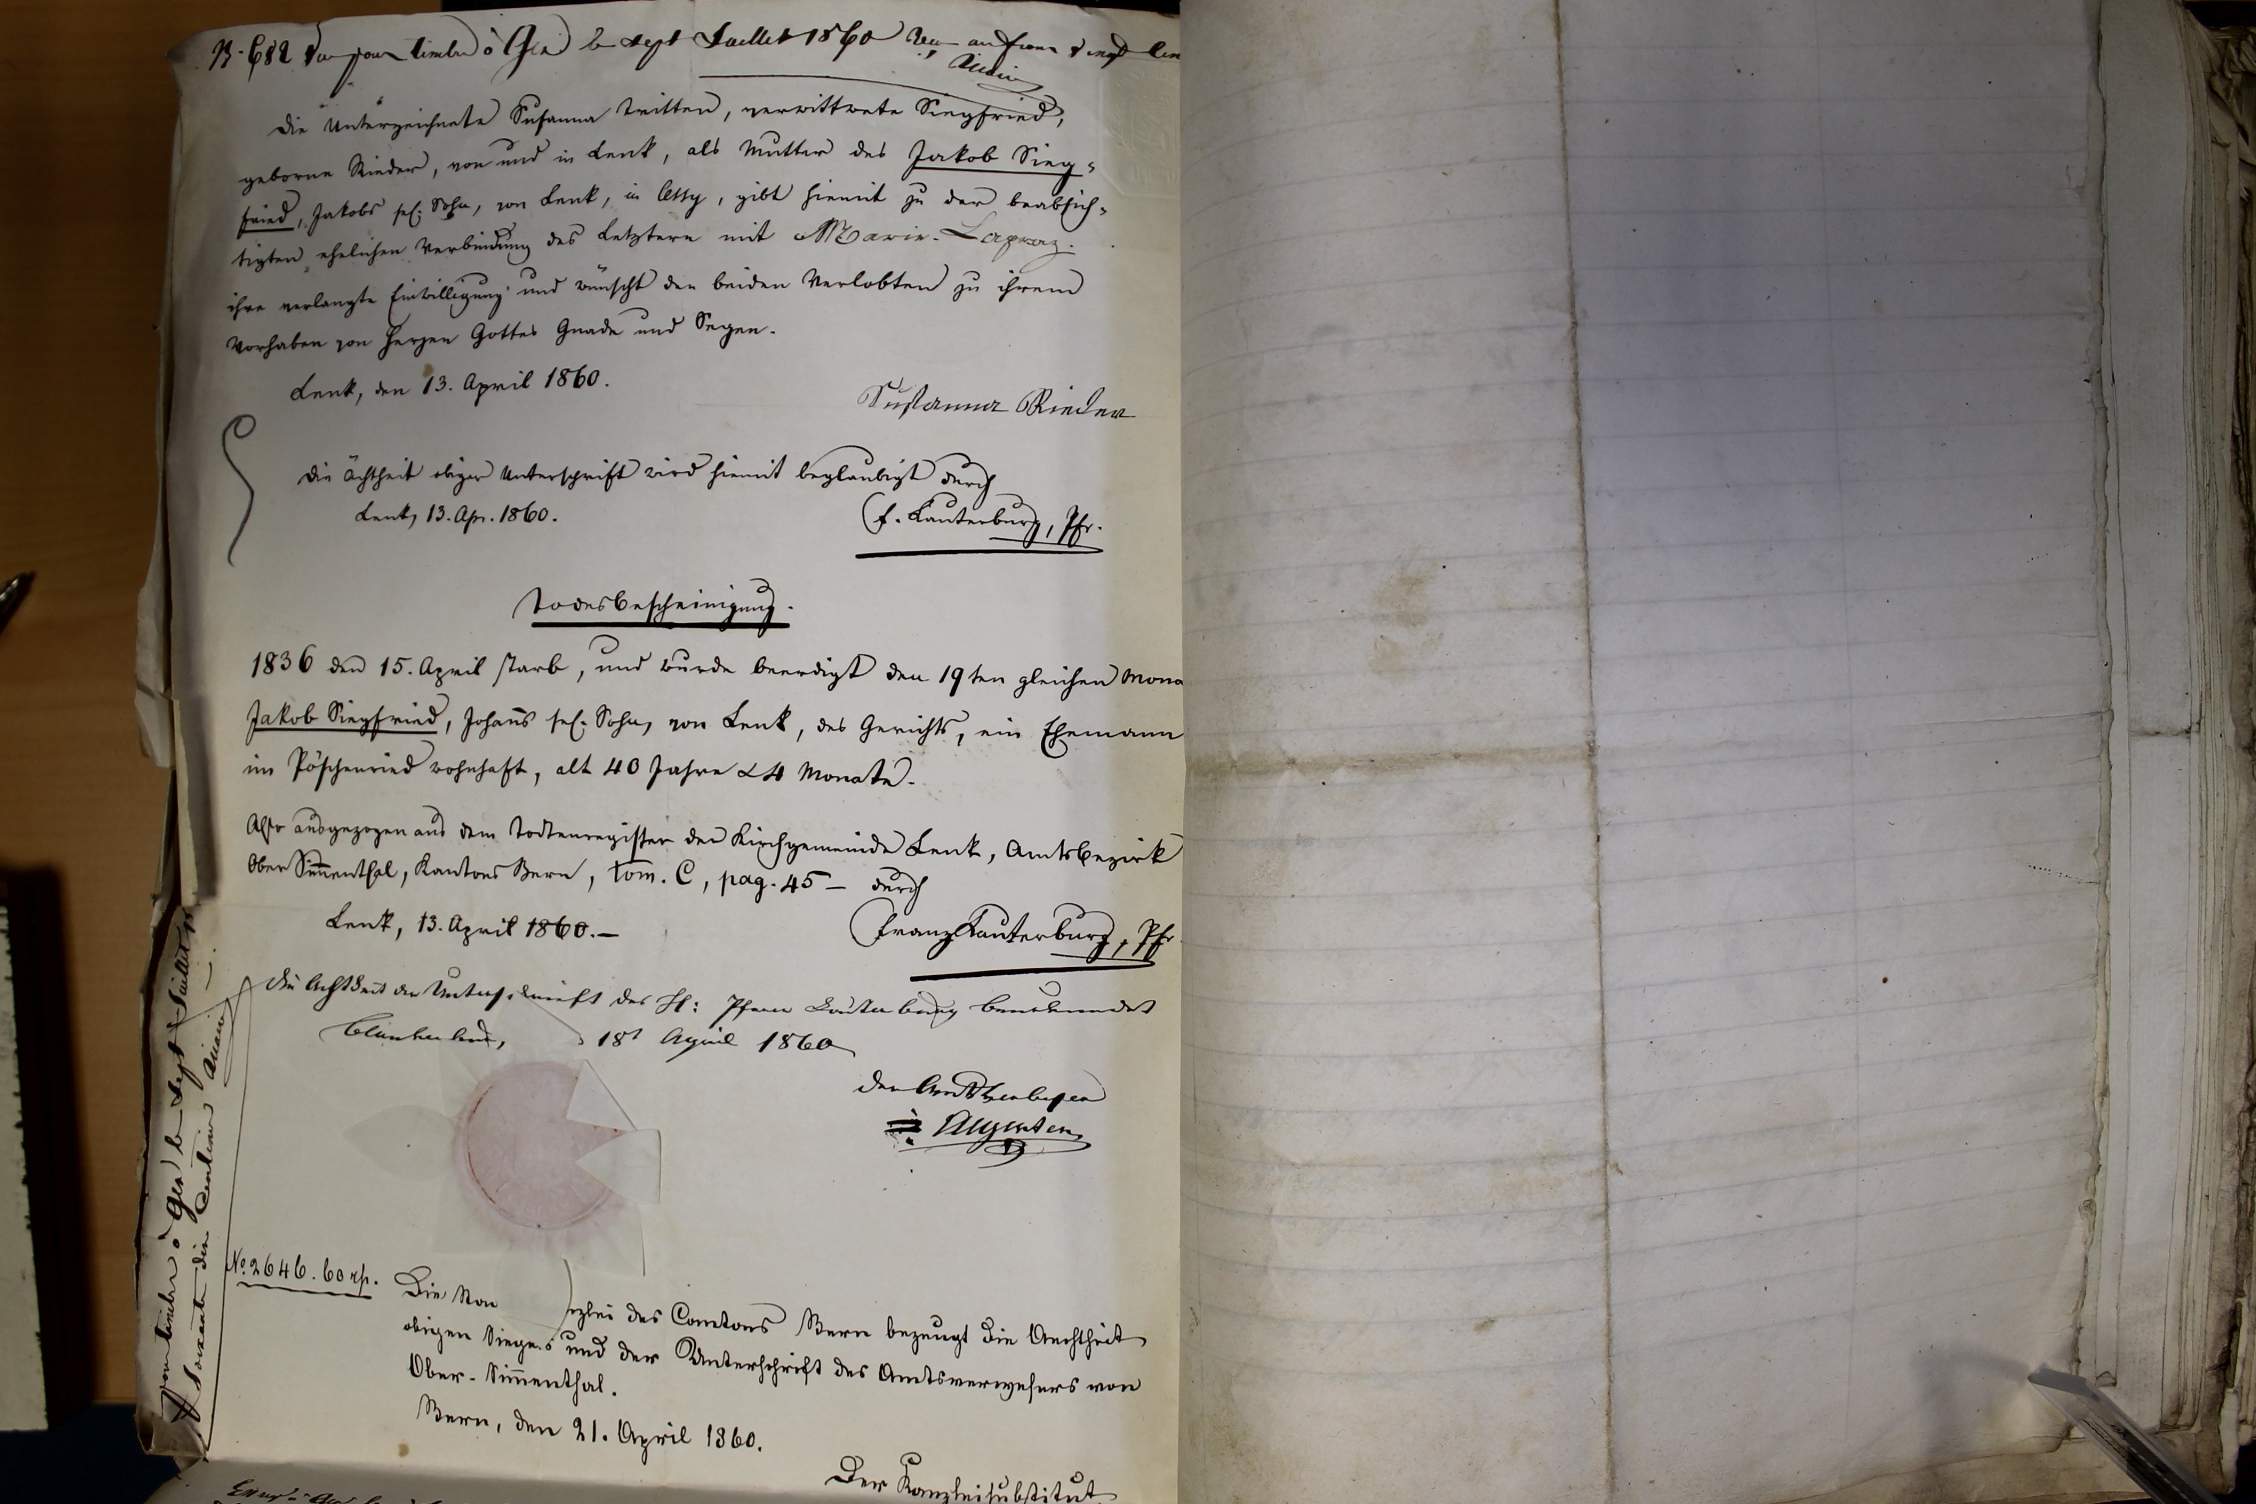 B. 682 Vu pour timbre à Gex le sept Juillet 1860 Reçu un franc vingt
Die Unterzeichnete Susanna Tritten, verwittwete Siegfried,
geborne Rieder, von und in Lenk, als Mutter des Jakob Sieg-
fried, Jakobs sel. Sohn, von Lenk, in Cessy, gibt hiemit zu der beabsich-
tigten ehelichen Verbindung des Letztern mit Marie Lapraz.
ihre verlangte Einwilligung und wünscht den beiden Verlobten zu ihrem
Vorhaben von Herzen Gottes Gnade und Segen.
Lenk, den 13. April 1860.
Susanna Rieder
Die Ächtheit obiger Unterschrift wird hiemit beglaubigt durch
Lenk, 13. Apr. 1860.
F. Lauterburg, Pfr.
Todesbescheinigung.
1836 den 15. April starb, und wurde beerdigt den 19ten gleichen Mona
Jakob Siegfried, Johans sel. Sohn, von Lenk, des Gerichts, ein Ehemann
im Pöschenried wohnhaft, alt 40 Jahre & 4 Monate.
Also ausgezogen aus dem Todtenregister der Kirchgemeinde Lenk, Amtsbezirk
Ober Sim̄enthal, Kantons Bern, tom. C, pag. 45 — durch
Lenk, 13. April 1860. —
Franz Lauterburg, Pfr.
Die Achtheit der Unterschrift des H: Pfarrer Lauterburg beurkundet
Blankenburg, 18t April 1860
Der Amtsverweser
pour timbre à Gex le sept Juillet
soixante dix centimes
No. 2646. 60 rp.
Die nzlei des Cantons Bern bezeugt die Aechtheit
obigen Siegels und der Unterschrift des Amtsverwesers von
Ober-Sim̄enthal.
Bern, den 21. April 1860.
Der Kanzleisubstitut